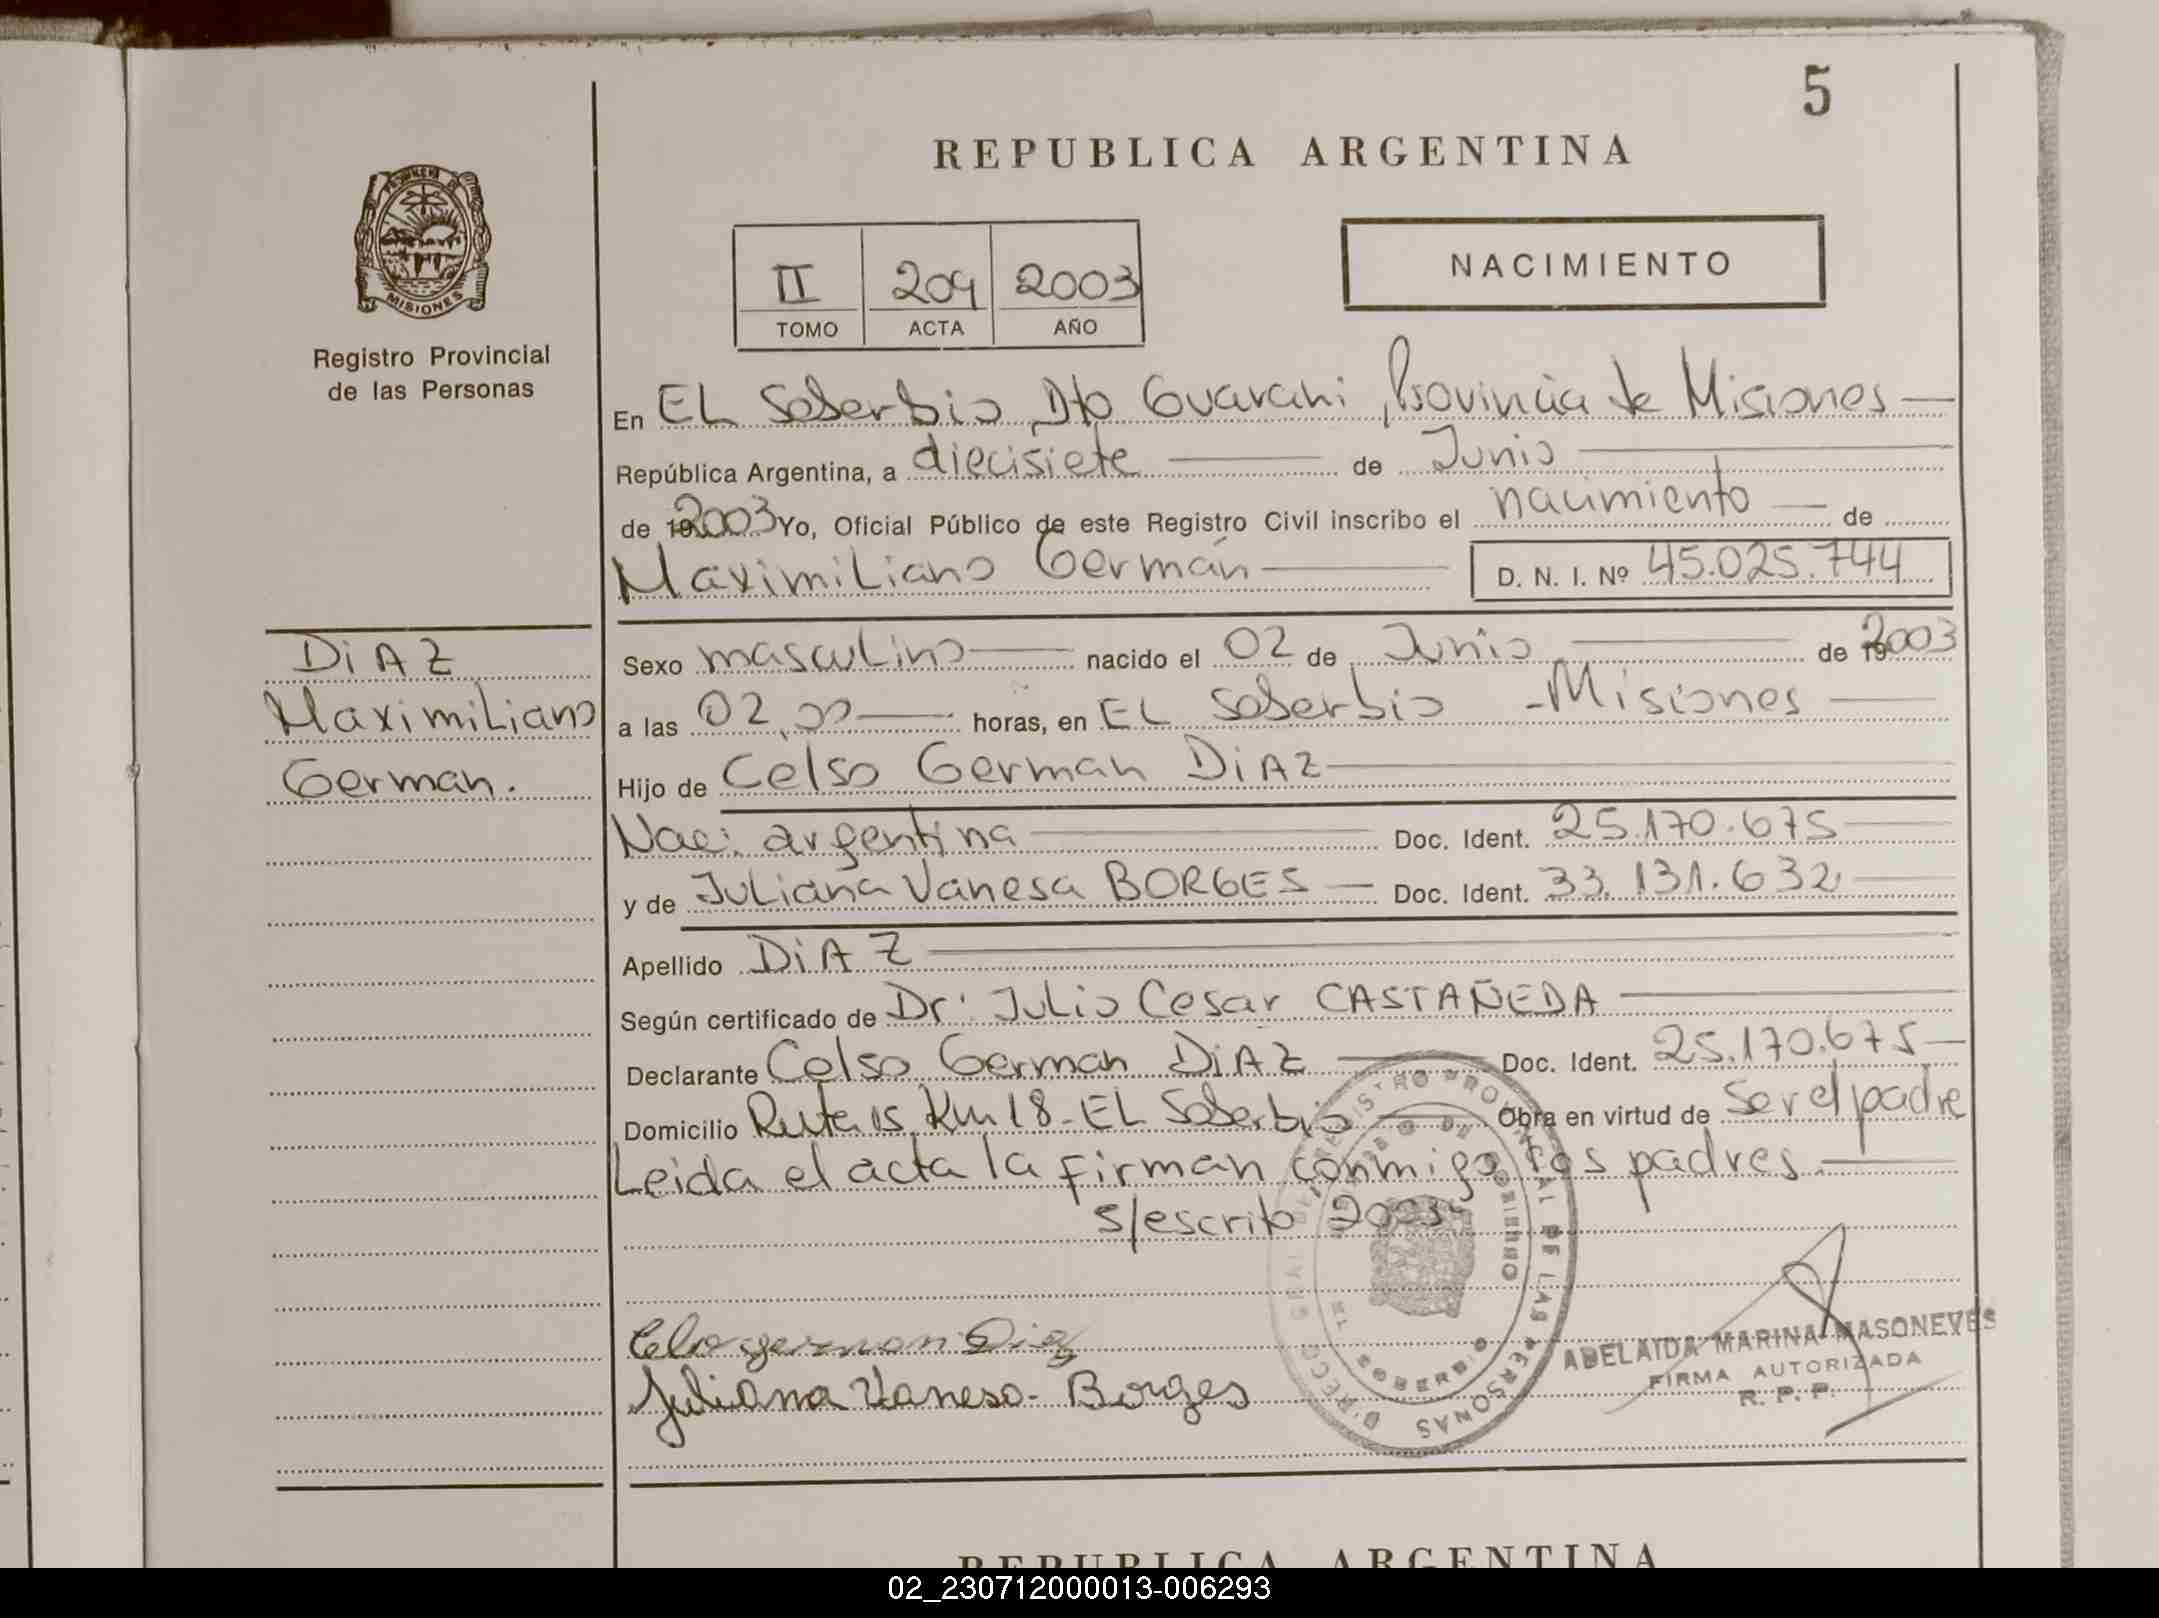 5
REPUBLICA ARGENTINA
II 209 2003
TOMO ACTA AÑO
NACIMIENTO
PROVINCIA DE
MISIONES
Registro Provincial
de las Personas
En EL Soberbio Dto Guarani, Provincia de Misiones
República Argentina, a diecisiete de Junio
de 2003 Yo, Oficial Público de este Registro Civil inscribo el nacimiento de
Maximiliano Germán D. N. I. Nº 45.025.744
DiAZ
Maximiliano
German.
Sexo masculino nacido el 02 de Junio de 2003
a las 02,00 horas, en EL Soberbio - Misiones
Hijo de Celso German DiAZ
Nac: argentina Doc. Ident. 25.170.675
y de Juliana Vanesa BORGES Doc. Ident. 33.131.632
Apellido DiAZ
Según certificado de Dr. Julio Cesar CASTAÑEDA
Declarante Celso German DiAZ Doc. Ident. 25.170.675
Domicilio Ruta 15 Km 18 - EL Soberbio Obra en virtud de Ser el padre
Leida el acta la firman conmigo los padres.
s/escrito 2003
Juliana Vanesa - Borges
REGISTRO PROVINCIAL DE LAS PERSONAS
ADELAIDA MARINA MASONEVES
FIRMA AUTORIZADA
R. P. P.
REPUBLICA ARGENTINA
02_230712000013-006293